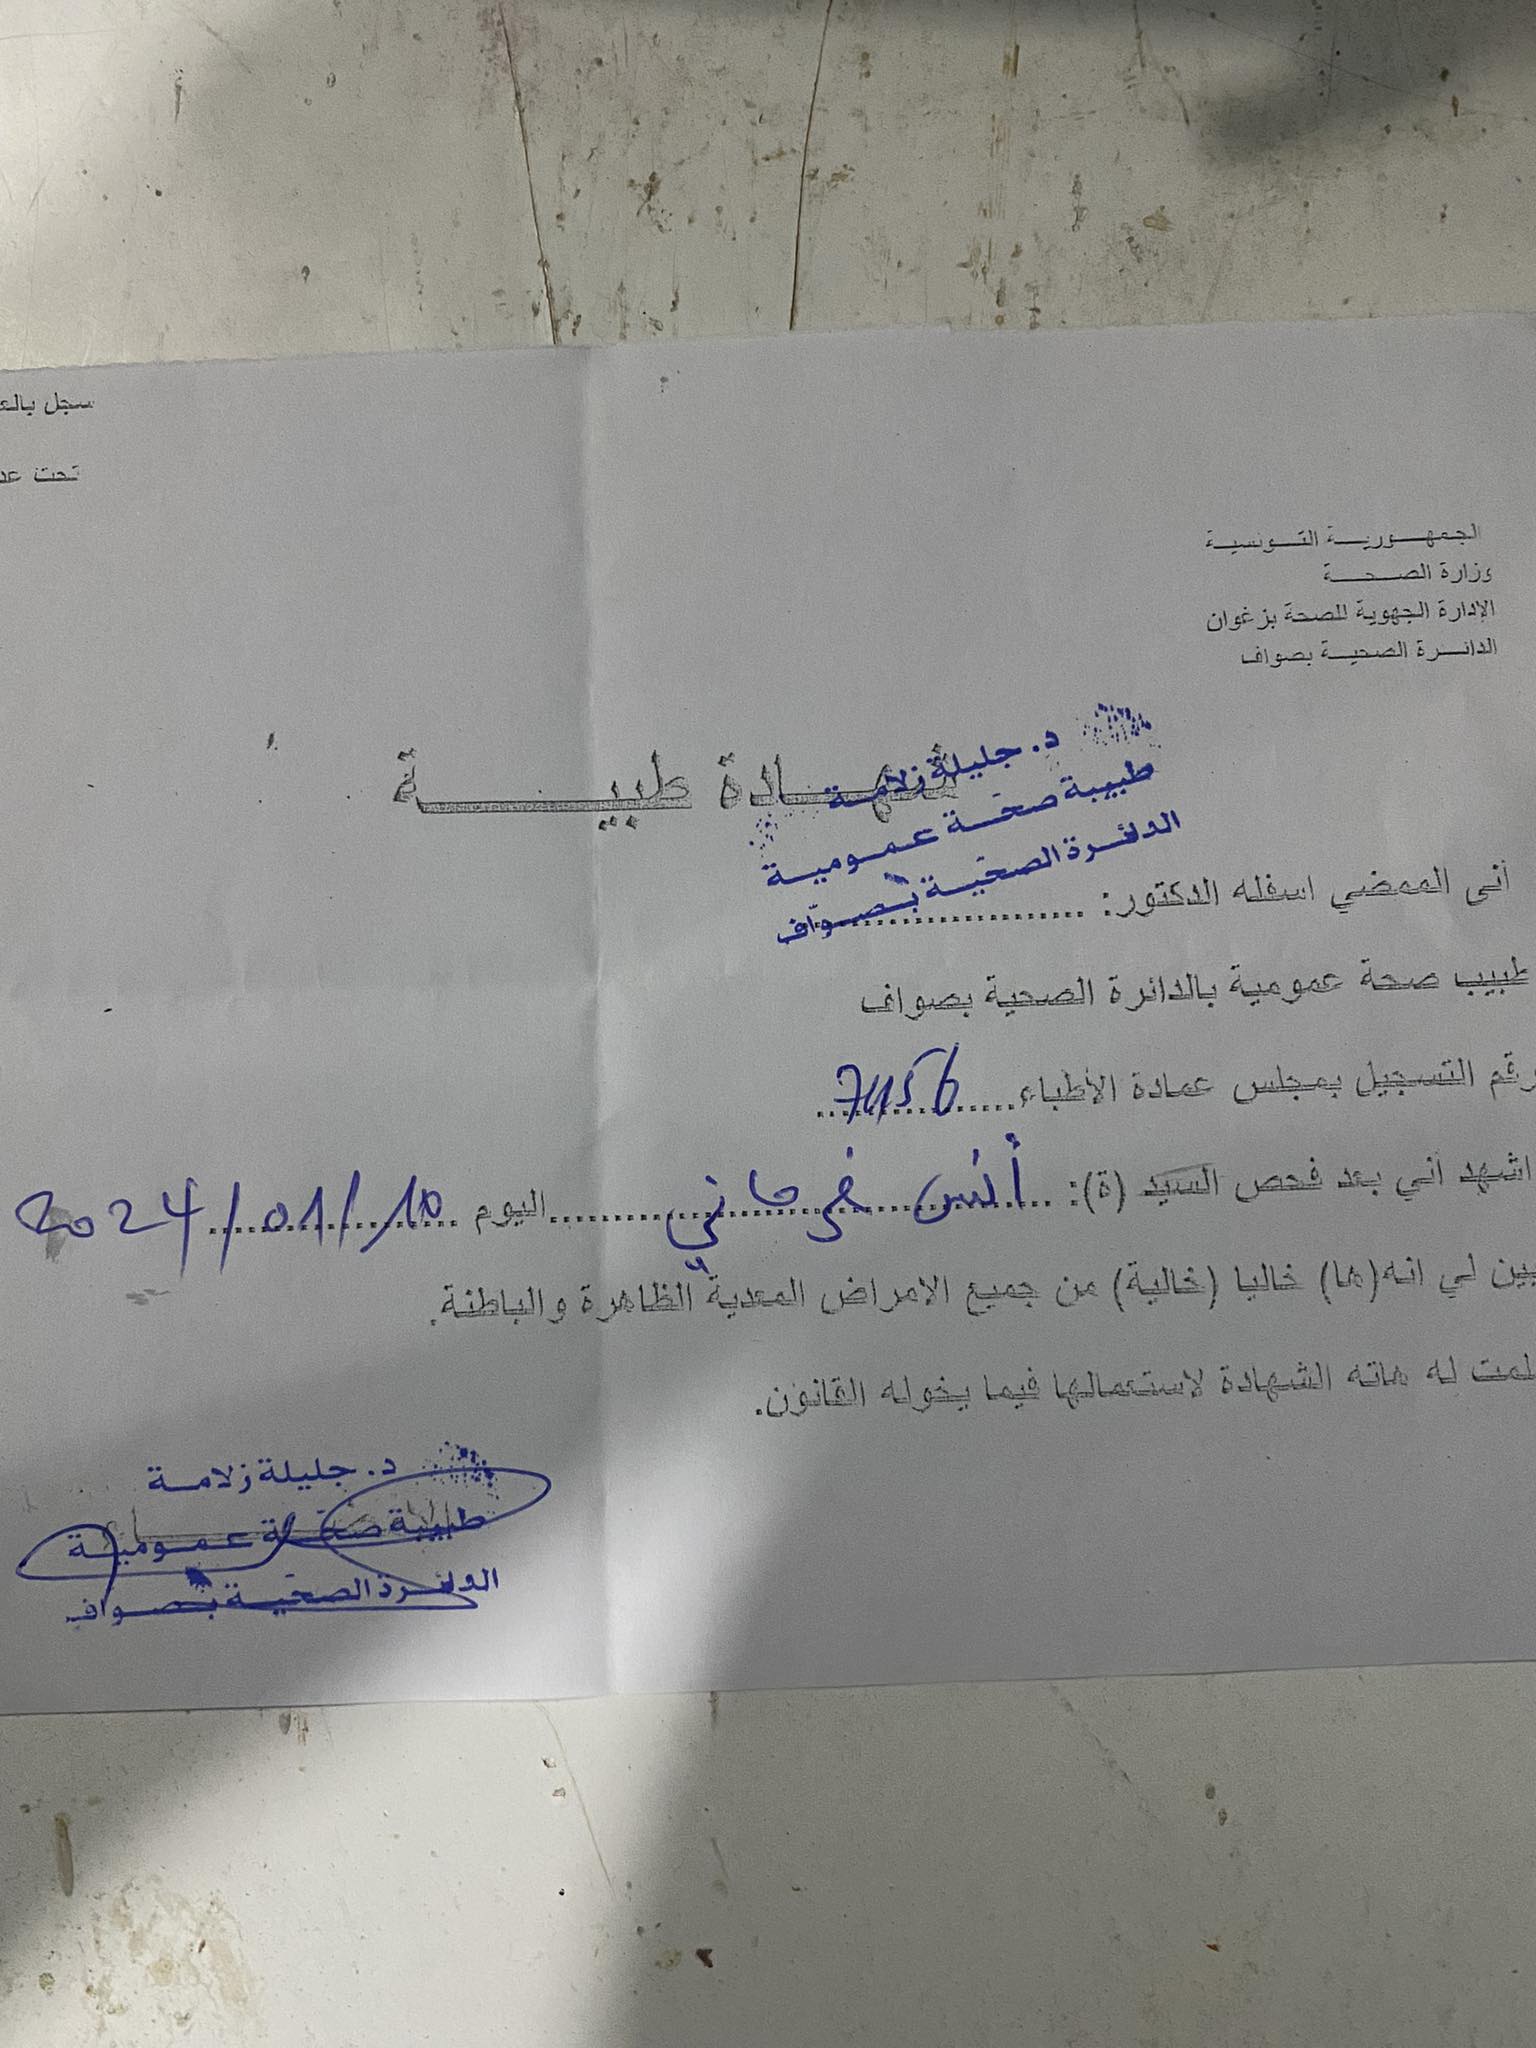 سجل بالع
تحت عد
الجمهورية التونسية
وزارة الصحة
الإدارة الجهوية للصحة بزغوان
الدائرة الصحية بصواف
شهادة طبية
د. جليلة زلامة
طبيبة صحة عمومية
الدائرة الصحية بصواف
أني الممضي اسفله الدكتور:
طبيب صحة عمومية بالدائرة الصحية بصواف
رقم التسجيل بمجلس عمادة الأطباء
اشهد اني بعد فحص السيد (ة): أنس فرحاني اليوم 10/01/2024
بين لي انه(ها) خاليا (خالية) من جميع الامراض المعدية الظاهرة والباطنة.
لمت له هاته الشهادة لاستعمالها فيما يخوله القانون.
د. جليلة زلامة
طبيبة صحة عمومية
الدائرة الصحية بصواف